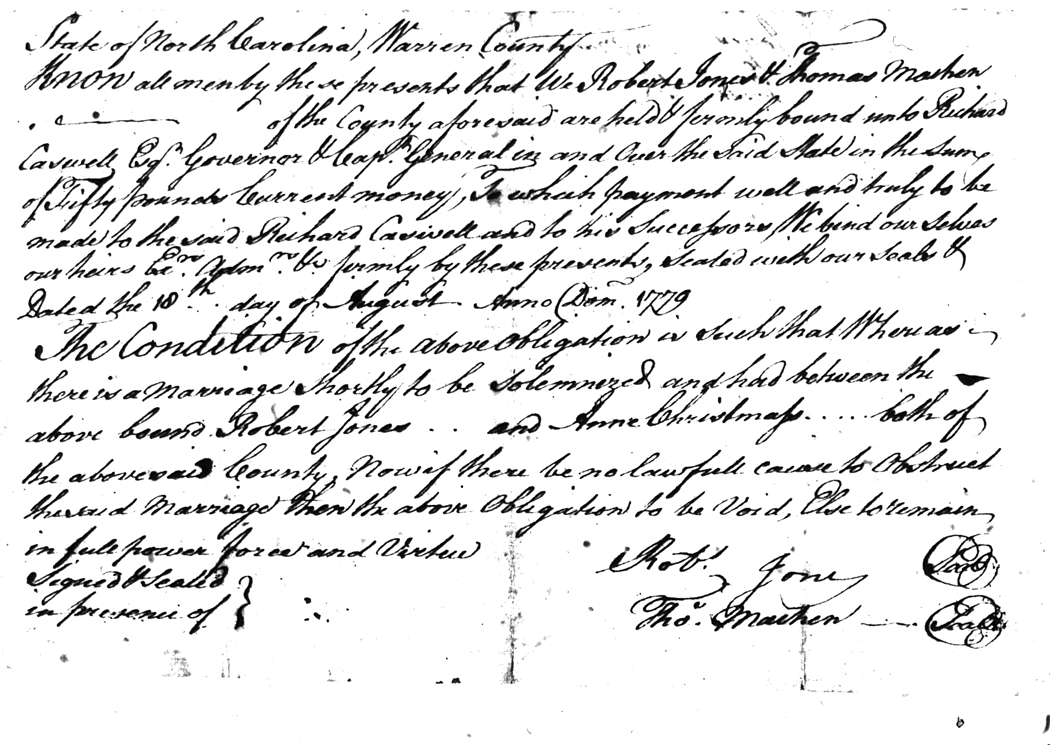 State of North Carolina, Warren County
Know all men by these presents that We Robert Jones & Thomas Machen
of the County aforesaid are held & firmly bound unto Richard
Caswell Esqr. Governor & Capn. General in and Over the said State in the Sum
of Fifty pounds Current money, To which payment well and truly to be
made to the said Richard Caswell and to his Successors, We bind ourselves
our heirs Exrs. Admrs. &c firmly by these presents, Sealed with our Seals &
Dated the 18th. day of August Anno Dom. 1779
The Condition of the above Obligation is Such that Whereas
there is a Marriage Shortly to be Solemnized and had between the
above bound Robert Jones . . and Anne Christmass . . . . . both of
the abovesaid County, Now if there be no lawfull cause to Obstruct
the said Marriage Then the above Obligation to be Void, Else to remain
in full power force and Virtue
Signed & Sealed
in presence of
Robt. Jones Seal
Thos. Machen Seal